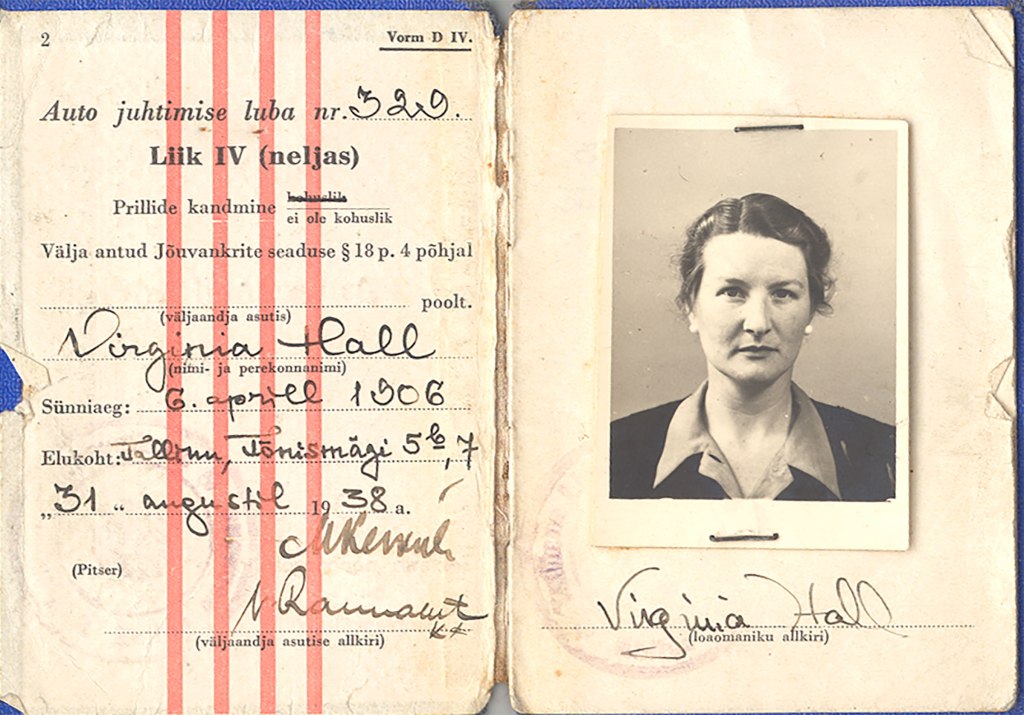 2
Vorm D IV.
Auto juhtimise luba nr. 329.
Liik IV (neljas)
Prillide kandmine kohuslik
ei ole kohuslik
Välja antud Jõuvankrite seaduse § 18 p. 4 põhjal
poolt.
(väljaandja asutis)
Virginia Hall
(nimi- ja perekonnanimi)
Sünniaeg: 6. aprill 1906
Elukoht: Tallinn, Tõnismägi 5b, 7
„31 “ augustil 1938 a.
(Pitser)
(väljaandja asutise allkiri)
Virginia Hall
(loaomaniku allkiri)